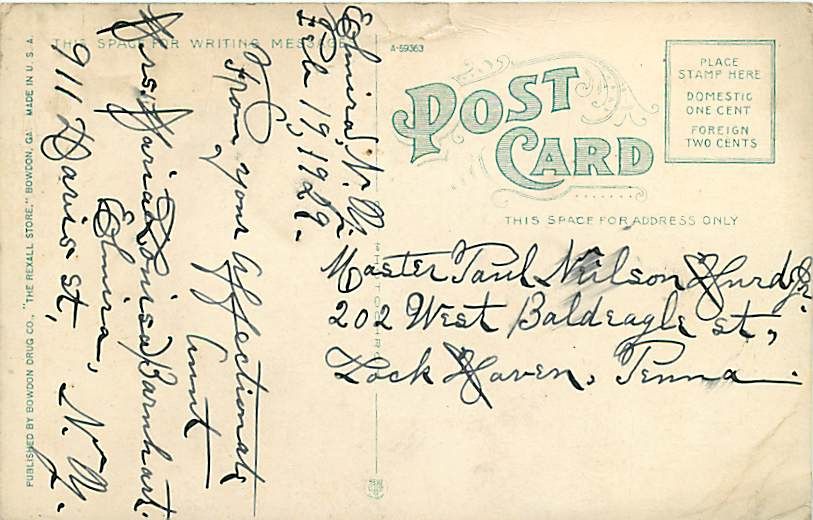 PUBLISHED BY BOWDON DRUG CO., "THE REXALL STORE," BOWDON, GA. MADE IN U. S. A.
THIS SPACE FOR WRITING MESSAGE
Elmira, N. Y.
Feb 19, 1929.
From your affectionate
Aunt
Mrs. Maria Louisa Barnhart.
Elmira,
911 Davis st, N. Y.
A-59363
POST
CARD
PLACE
STAMP HERE
DOMESTIC
ONE CENT
FOREIGN
TWO CENTS
THIS SPACE FOR ADDRESS ONLY
Master Paul Neilson Hurd Jr.
202 West Baldeagle st,
Lock Haven, Penna.